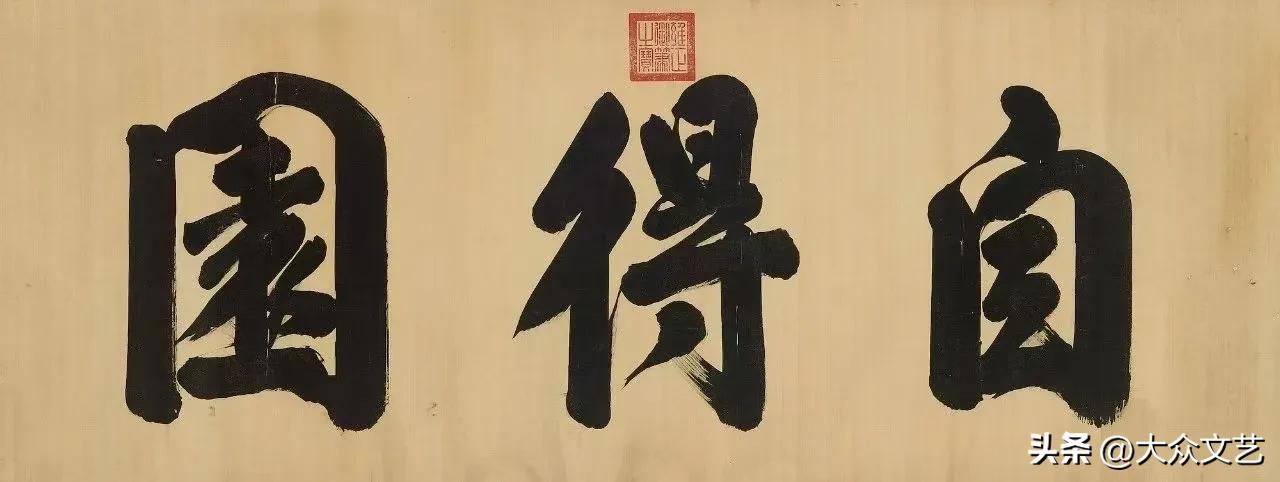 雍正御筆之寶
自得園
头条 @大众文艺